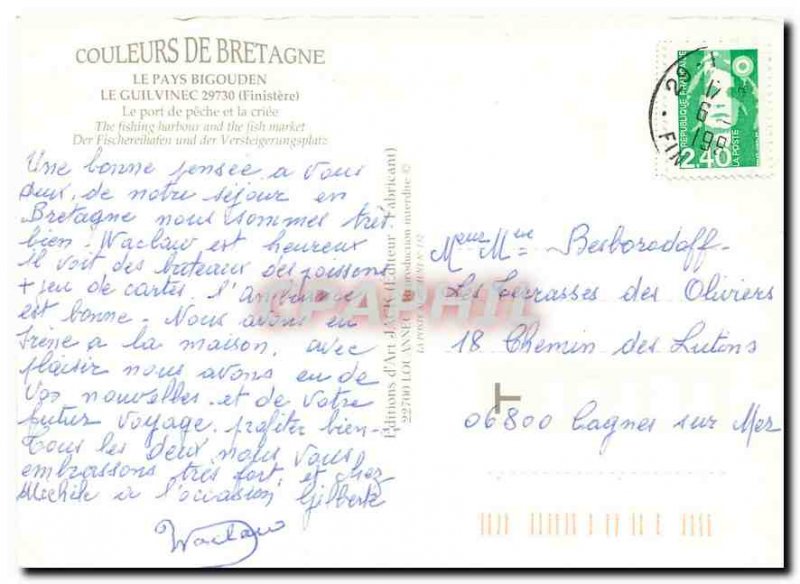 COULEURS DE BRETAGNE
LE PAYS BIGOUDEN
LE GUILVINEC 29730 (Finistère)
Le port de pêche et la criée
The fishing harbour and the fish market
Der Fischereihafen und der Versteigerungsplatz
Une bonne pensée a vous
deux, de notre séjour en
Bretagne nous sommes très
bien - Waclaw est heureux
il voit des bateaux des poissons
+ jeu de cartes. l'ambiance
est bonne - Nous avons eu
Irène a la maison, avec
plaisir nous avons eu de
vos nouvelles et de votre
futur voyage, profitez bien -
Tous les deux nous vous
embrassons très fort, et chez
Michèle à l'occasion Gilberte
Waclaw
Editions d'Art JACK (Editeur - Fabricant)
22700 LOUANNEC Reproduction interdite ©
REPUBLIQUE FRANÇAISE
2,40
LA POSTE
29
FIN
Mr et Mme Besborodoff
Les Terrasses des Oliviers
18 Chemin des Lutons
06800 Cagnes sur Mer
CPAPHIL